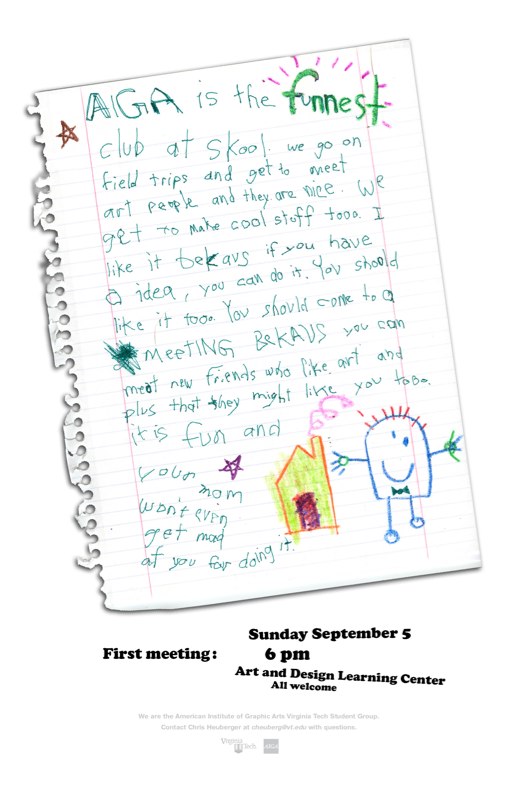 AIGA is the funnest
club at skool. we go on
field trips and get to meet
art people and they are nice. We
get to make cool stuff tooo. I
like it bekavs if you have
a idea, you can do it. You should
like it tooo. You should come to a
MEETING BEKAUS you can
meet new friends who like art and
plus that they might like you tooo.
it is fun and
your mom
won't evin
get mad
at you for doing it.
First meeting:
Sunday September 5
6 pm
Art and Design Learning Center
All welcome
We are the American Institute of Graphic Arts Virginia Tech Student Group.
Contact Chris Heuberger at cheuberg@vt.edu with questions.
Virginia Tech
AIGA